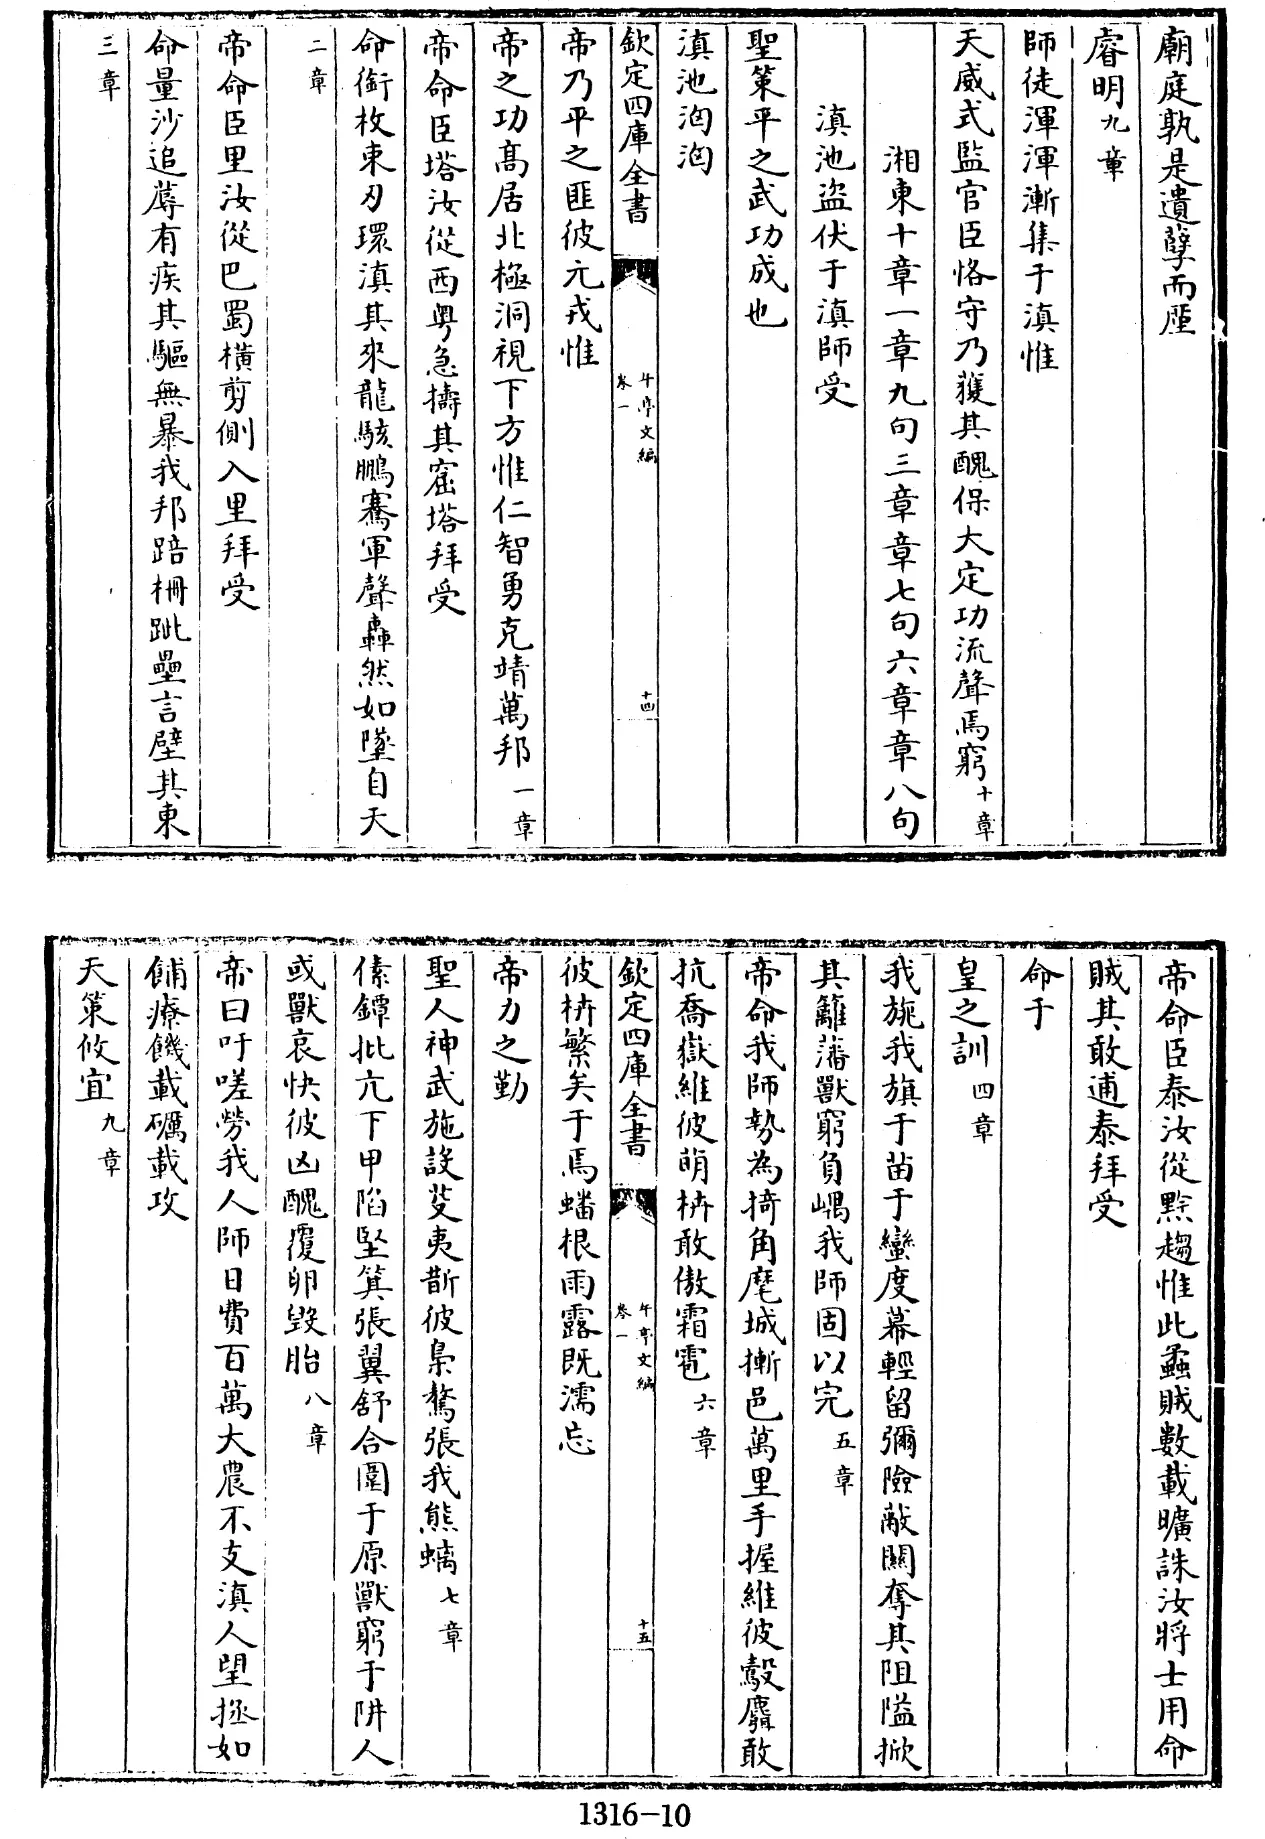 廟庭孰是遺孽而壓
睿明九章
師徒渾渾漸集于滇惟
天威式監官臣恪守乃獲其醜保大定功流聲焉窮十章
湘東十章一章九句三章章七句六章章八句
滇池盜伏于滇師受
聖策平之武功成也
滇池洶洶
欽定四庫全書
午亭文編
卷一
十四
帝乃平之匪彼元戎惟
帝之功高居北極洞視下方惟仁智勇克靖萬邦一章
帝命臣塔汝從西粵急擣其窟塔拜受
命銜枚束刃環滇其來龍駭鵬騫軍聲轟然如墜自天
二章
帝命臣里汝從巴蜀橫剪側入里拜受
命量沙追蓐有疾其驅無暴我邦踣柵跐壘言壁其東
三章
帝命臣泰汝從黔趨惟此蟊賊數載曠誅汝將士用命
賊其敢逋泰拜受
命于
皇之訓四章
我旐我旗于苗于蠻度幕輕留彌險敵關奪其阻隘掀
其籬藩獸窮負嵎我師固以完五章
帝命我師勢為掎角麾城摲邑萬里手握維彼鷇麛敢
抗喬嶽維彼萌枿敢傲霜雹六章
欽定四庫全書
午亭文編
卷一
十五
彼枿繁矣于焉蟠根雨露既濡忘
帝力之勤
聖人神武施設芟夷斮彼梟驁張我熊螭七章
傃鐔批亢下甲陷堅箕張翼舒合圍于原獸窮于阱人
或獸哀怏彼凶醜覆卵毀胎八章
帝曰吁嗟勞我人師日費百萬大農不支滇人望拯如
餔療饑載礪載攻
天策攸宜九章
1316-10